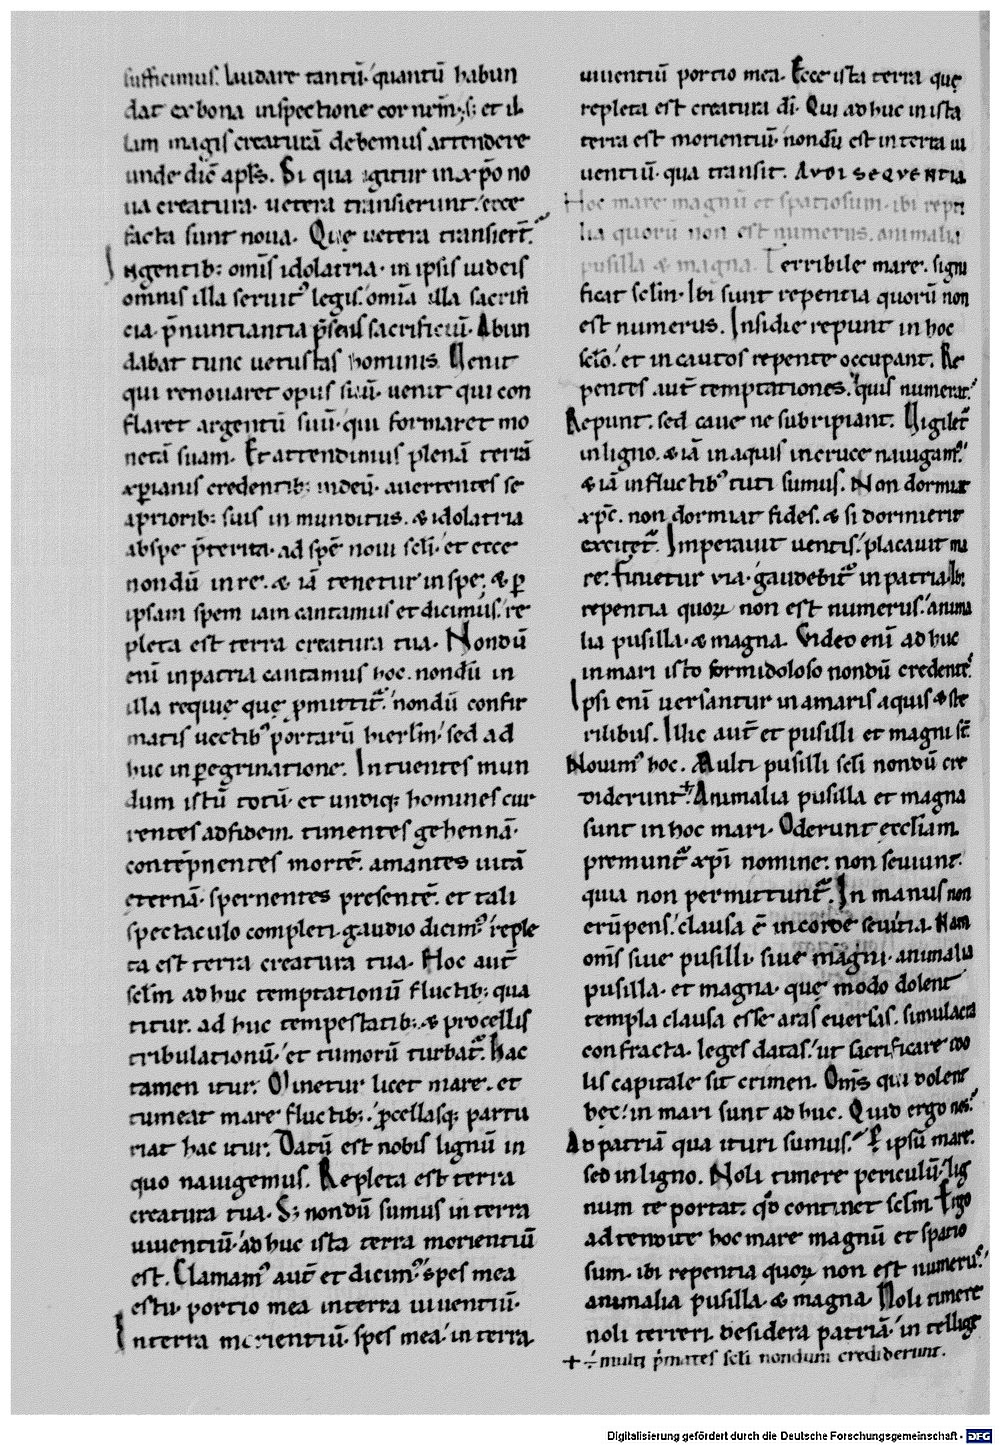 sufficimus. Laudare tantū. quantū habun
dat ex bona inspectione cor nr̄m; s; et il
lam magis creaturā debemus attendere
unde dic̄ apl̄s. Si qua igitur in xp̄o no
ua creatura. uetera transierunt. ecce
facta sunt noua. Quę uetera transier̄t.
Ingentib; om̄is idolatria. in ipsis iudeis
omnis illa seruit᾽ legis. om̄ia illa sacrifi
cia. p̄nuntiantia p̄sens sacrificiū. Abun
dabat tunc uetustas hominis. Uenit
qui renouaret opus suū. uenit qui con
flaret argentū suū. qui formaret mo
netā suam. Et attendimus plenā terrā
xp̄ianis credentib; in deū. auertentes se
a priorib; suis inmunditiis. & idolatria
abspe p̄terita. ad spē noui sc̄li. et ecce
nondū in re. & iā tenetur in spe; & ꝑ
ipsam spem iam cantamus et dicimus. re
pleta est terra creatura tua. Nondū
eni in patria cantamus hoc. nondū in
illa requie quę ꝓmittit᾽. nondū confir
matis uectib᾽ portarū hierl̄m. sed ad
huc in ꝑegrinatione. Intuentes mun
dum istū totū. et undiq; homines cur
rentes ad fidem. timentes gehennā.
contēpnentes mortē. amantes uitā
ęternā. spernentes presentē. et tali
spectaculo completi gaudio dicim᾽. reple
ta est terra creatura tua. Hoc aut̄
sc̄lm adhuc temptationū fluctib; qua
titur. adhuc tempestatib; & procellis
tribulationū. et tumorū turbat᾽. hac
tamen itur. Minetur licet mare. et
tumeat mare fluctib; ꝓcellasq; partu
riat hac itur. Datū est nobis lignū in
quo nauigemus. Repleta est terra
creatura tua. S; nondū sumus in terra
uiuentiū. adhuc ista terra morientiū
est. Clamam᾽ aut̄ et dicim᾽. spes mea
es tu. portio mea in terra uiuentiū.
In terra morientiū. spes mea. in terra
uiuentiū portio mea. Ecce ista terra quę
repleta est creatura di. Qui adhuc in ista
terra est morientiū. nondū est in terra ui
uentiū. qua transit. Audi sequentia
Hoc mare magnū et spatiosum. ibi repti
lia quorū non est numerus. animalia
pusilla & magna. Terribile mare. signi
ficat sc̄lm. Ibi sunt repentia quorū non
est numerus. Insidie repunt in hoc
sc̄lo. et incautos repente occupant. Re
pentes aut̄ temptationes. quis numerat.
Repunt. sed caue ne subripiant. Uigilet᾽
in ligno. & iā in aquis in cruce nauigam᾽.
& iā in fluctib᾽ tuti sumus. Non dormiat
xp̄c. non dormiat fides. & si dormierit
excitet᾽. Imperauit uentis. placauit ma
re. finietur via. gaudebit᾽ in patria. Ibi
repentia quoꝝ non est numerus. anima
lia pusilla. & magna. Video eni adhuc
in mari isto formidoloso nondū credente᾽.
Ipsi eni uersantur in amaris aquis & ste
rilibus. Illic aut̄ et pusilli et magni st̄.
Nouim᾽ hoc. Multi pusilli sc̄li nondū cre
diderunt. + Animalia pusilla et magna
sunt in hoc mari. Oderunt ęccl̄iam.
premunt᾽ xp̄i nomine. non seuiunt.
quia non permittunt᾽. In manus non
erūpens. clausa ē in corde seuitia. Nam
om̄s siue pusilli. siue magni. animalia
pusilla. et magna. quę modo dolent
templa clausa esse aras euersas. simulacra
confracta. leges datas. ut sacrificare ido
lis capitale sit crimen. Om̄s qui dolent
hęc. in mari sunt adhuc. Quid ergo nos.
Ad patriā qua ituri sumus. Ꝑ ipsū mare.
sed in ligno. Noli timere periculū. lig
num te portat. qd̄ continet sc̄lm. Ergo
adtendite hoc mare magnū et spatio
sum. ibi repentia quoꝝ non est numerus.
animalia pusilla. & magna. Noli timere
noli terreri. desidera patriā. intellige
+ ÷ multi p̄mates sc̄li nondum crediderunt.
Digitalisierung gefördert durch die Deutsche Forschungsgemeinschaft - DFG